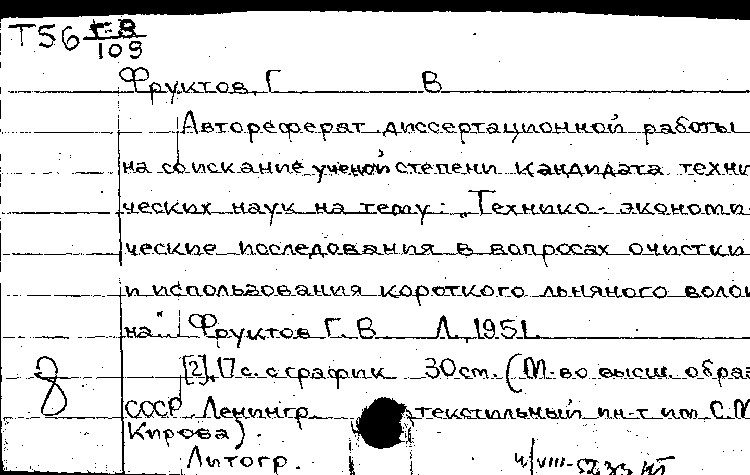 Т56 г-8
109
Фруктов, Г. В
Автореферат диссертационной работы
на соискание ученой степени кандидата техни
ческих наук на тему: „Технико-экономи
ческие последования в вопросах очистки
и использования короткого льняного волок
на" Фруктов Г. В. Л, 1951.
[2], 17с. с график 30см. (М-во высш. образ
СССР. Ленингр. текстильный ин-т им С.М
Кирова).
8
Литогр.